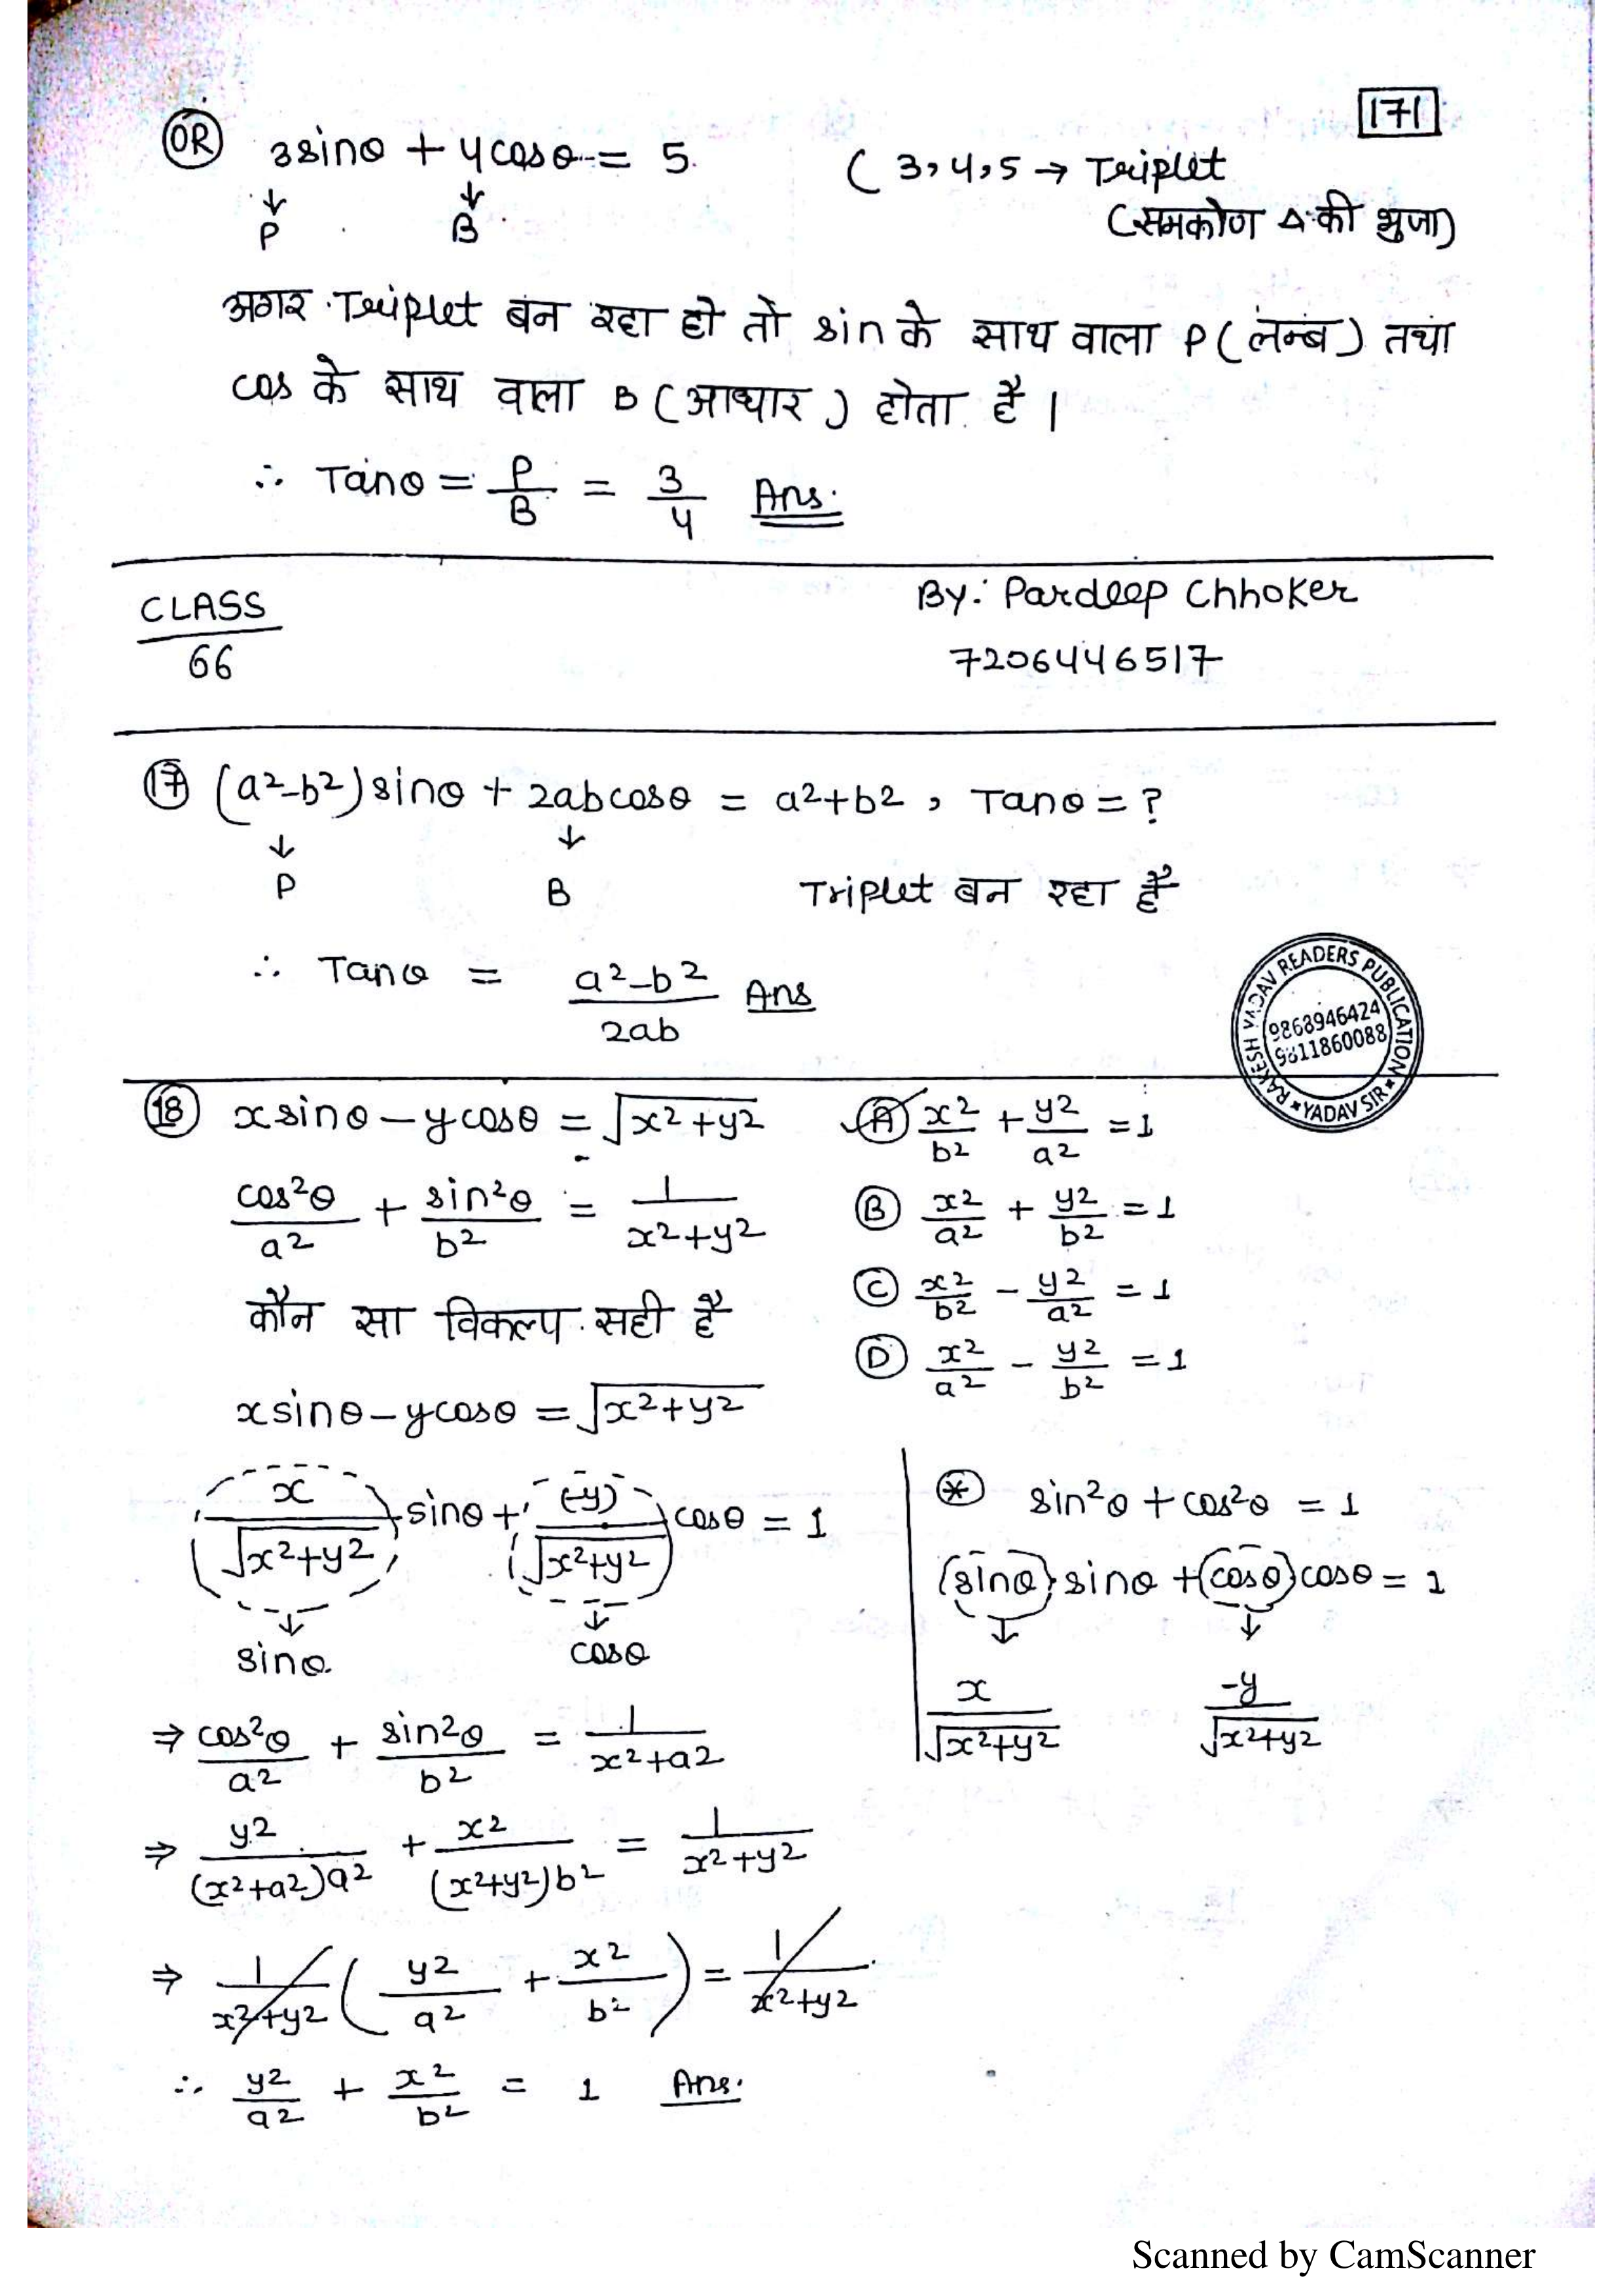 171
OR 3sinθ + 4cosθ = 5. ( 3,4,5 → Triplet
↓ ↓
P B (समकोण △ की भुजा)
अगर Triplet बन रहा हो तो sin के साथ वाला P (लम्ब) तथा
cos के साथ वाला B (आधार) होता है।
∴ Tanθ = P/B = 3/4 Ans.
CLASS By: Pardeep Chhoker
66 7206446517
17 (a²-b²) sinθ + 2ab cosθ = a²+b², Tanθ = ?
↓ ↓
P B Triplet बन रहा है
∴ Tanθ = a²-b²/2ab Ans
RAKESH YADAV READERS PUBLICATION
9868946424
9811860088
★ YADAV SIR ★
18 x sinθ - y cosθ = √x²+y² A x²/b² + y²/a² = 1
cos²θ/a² + sin²θ/b² = 1/x²+y² B x²/a² + y²/b² = 1
कौन सा विकल्प सही है C x²/b² - y²/a² = 1
D x²/a² - y²/b² = 1
x sinθ - y cosθ = √x²+y²
(x/√x²+y²) sinθ + ((-y)/√x²+y²) cosθ = 1
↓ ↓
sinθ cosθ
* sin²θ + cos²θ = 1
(sinθ) sinθ + (cosθ) cosθ = 1
↓ ↓
x/√x²+y² -y/√x²+y²
⇒ cos²θ/a² + sin²θ/b² = 1/x²+a²
⇒ y²/(x²+a²)a² + x²/(x²+y²)b² = 1/x²+y²
⇒ 1/x²+y² (y²/a² + x²/b²) = 1/x²+y²
∴ y²/a² + x²/b² = 1 Ans.
Scanned by CamScanner